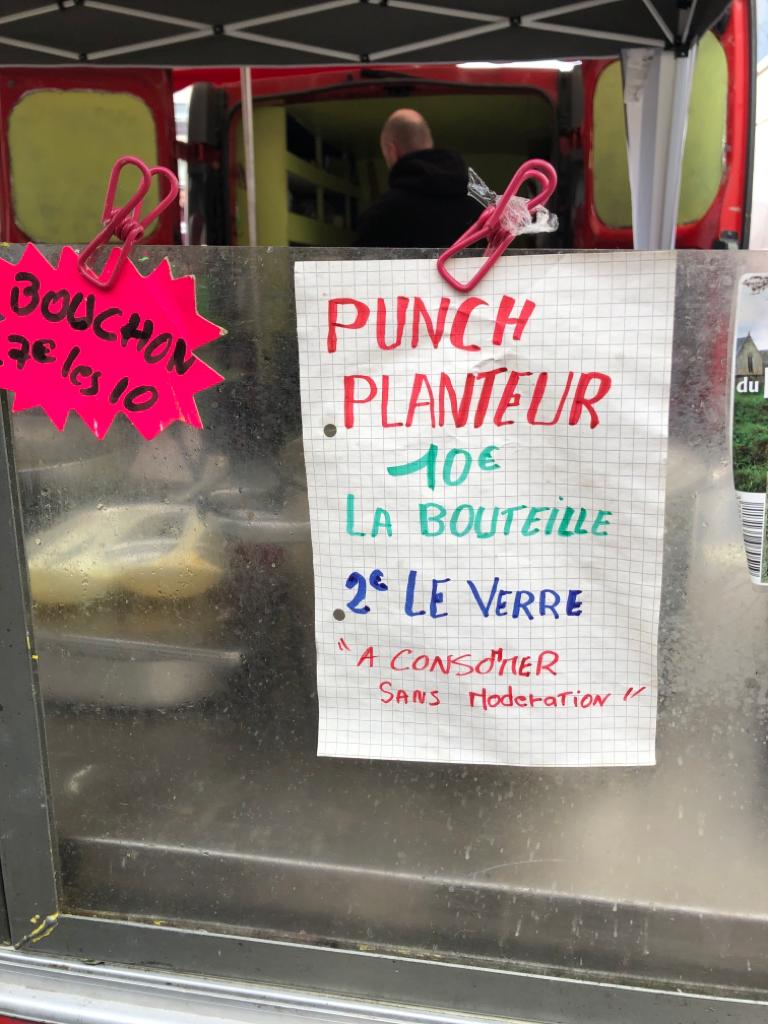 BOUCHON
7€ les 10
PUNCH
PLANTEUR
10€
LA BOUTEILLE
2€ LE VERRE
"A CONSOMER
SANS MODERATION"
du